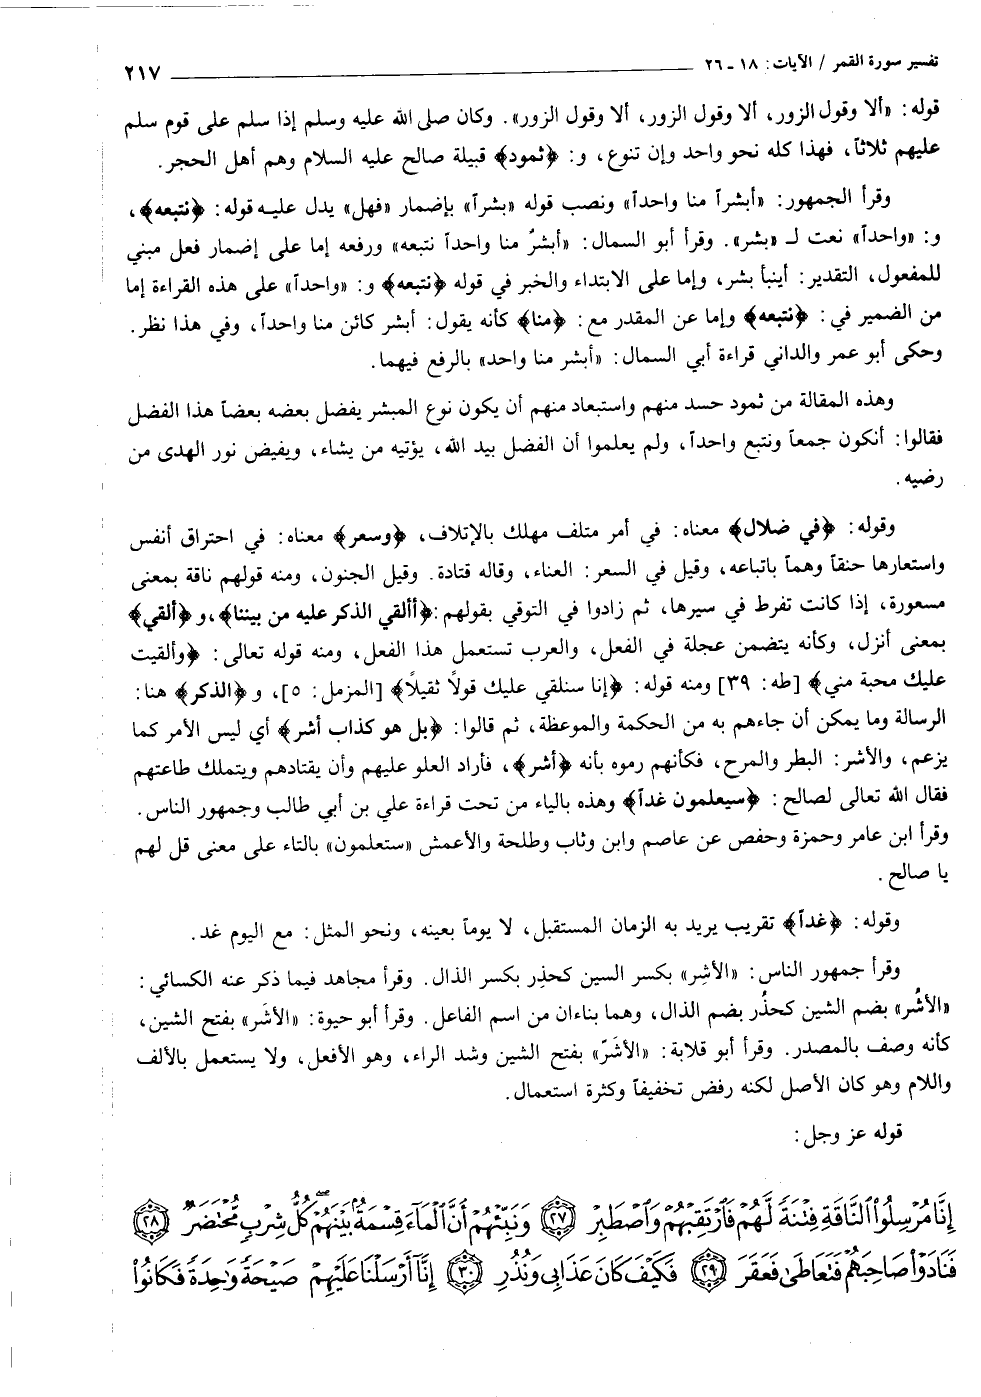 تفسير سورة القمر / الآيات: ١٨ - ٢٦ ٢١٧
قوله: «ألا وقول الزور، ألا وقول الزور، ألا وقول الزور». وكان صلى الله عليه وسلم إذا سلم على قوم سلم
عليهم ثلاثاً، فهذا كله نحو واحد وإن تنوع، و: ﴿ثمود﴾ قبيلة صالح عليه السلام وهم أهل الحجر.
وقرأ الجمهور: «أبشراً منا واحداً» ونصب قوله «بشراً» بإضمار «فهل» يدل عليه قوله: ﴿نتبعه﴾،
و: «واحداً» نعت لـ «بشر». وقرأ أبو السمال: «أبشرٌ منا واحداً نتبعه» ورفعه إما على إضمار فعل مبني
للمفعول، التقدير: أينبأ بشر، وإما على الابتداء والخبر في قوله ﴿نتبعه﴾ و: «واحداً» على هذه القراءة إما
من الضمير في: ﴿نتبعه﴾ وإما عن المقدر مع: ﴿منا﴾ كأنه يقول: أبشر كائن منا واحداً، وفي هذا نظر.
وحكى أبو عمر والداني قراءة أبي السمال: «أبشر منا واحد» بالرفع فيهما.
وهذه المقالة من ثمود حسد منهم واستبعاد منهم أن يكون نوع المبشر يفضل بعضه بعضاً هذا الفضل
فقالوا: أنكون جمعاً ونتبع واحداً، ولم يعلموا أن الفضل بيد الله، يؤتيه من يشاء، ويفيض نور الهدى من
رضيه.
وقوله: ﴿في ضلال﴾ معناه: في أمر متلف مهلك بالإتلاف، ﴿وسعر﴾ معناه: في احتراق أنفس
واستعارها حنقاً وهماً باتباعه، وقيل في السعر: العناء، وقاله قتادة. وقيل الجنون، ومنه قولهم ناقة بمعنى
مسعورة، إذا كانت تفرط في سيرها، ثم زادوا في التوقي بقولهم: ﴿أألقي الذكر عليه من بيننا﴾، و ﴿ألقي﴾
بمعنى أنزل، وكأنه يتضمن عجلة في الفعل، والعرب تستعمل هذا الفعل، ومنه قوله تعالى: ﴿وألقيت
عليك محبة مني﴾ [طه: ٣٩] ومنه قوله: ﴿إنا سنلقي عليك قولاً ثقيلاً﴾ [المزمل: ٥]، و ﴿الذكر﴾ هنا:
الرسالة وما يمكن أن جاءهم به من الحكمة والموعظة، ثم قالوا: ﴿بل هو كذاب أشر﴾ أي ليس الأمر كما
يزعم، والأشر: البطر والمرح، فكأنهم رموه بأنه ﴿أشر﴾، فأراد العلو عليهم وأن يقتادهم ويتملك طاعتهم
فقال الله تعالى لصالح: ﴿سيعلمون غداً﴾ وهذه بالياء من تحت قراءة علي بن أبي طالب وجمهور الناس.
وقرأ ابن عامر وحمزة وحفص عن عاصم وابن وثاب وطلحة والأعمش «ستعلمون» بالتاء على معنى قل لهم
يا صالح.
وقوله: ﴿غداً﴾ تقريب يريد به الزمان المستقبل، لا يوماً بعينه، ونحو المثل: مع اليوم غد.
وقرأ جمهور الناس: «الأشِر» بكسر السين كحذِر بكسر الذال. وقرأ مجاهد فيما ذكر عنه الكسائي:
«الأشُر» بضم الشين كحذُر بضم الذال، وهما بناءان من اسم الفاعل. وقرأ أبو حيوة: «الأشَر» بفتح الشين،
كأنه وصف بالمصدر. وقرأ أبو قلابة: «الأشَرّ» بفتح الشين وشد الراء، وهو الأفعل، ولا يستعمل بالألف
واللام وهو كان الأصل لكنه رفض تخفيفاً وكثرة استعمال.
قوله عز وجل:
إِنَّا مُرْسِلُوا۟ ٱلنَّاقَةِ فِتْنَةً لَّهُمْ فَٱرْتَقِبْهُمْ وَٱصْطَبِرْ ٢٧ وَنَبِّئْهُمْ أَنَّ ٱلْمَآءَ قِسْمَةٌۢ بَيْنَهُمْ ۖ كُلُّ شِرْبٍ مُّحْتَضَرٌ ٢٨
فَنَادَوْا۟ صَاحِبَهُمْ فَتَعَاطَىٰ فَعَقَرَ ٢٩ فَكَيْفَ كَانَ عَذَابِى وَنُذُرِ ٣٠ إِنَّآ أَرْسَلْنَا عَلَيْهِمْ صَيْحَةً وَٰحِدَةً فَكَانُوا۟